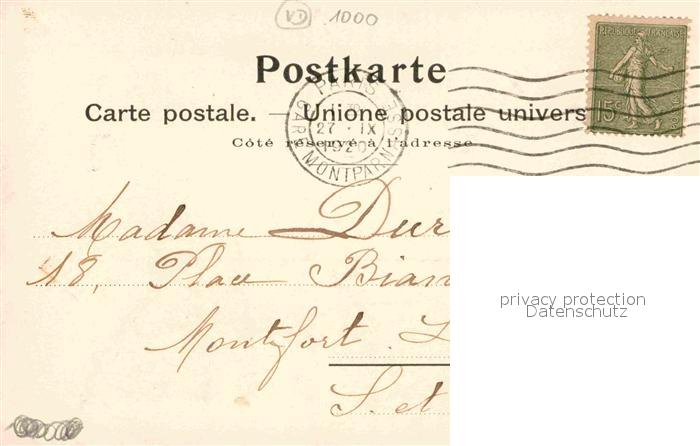 VD 1000
REPUBLIQUE FRANÇAISE
15c
Postkarte
PARIS
GARE MONTPARNASSE
27 · IX
1920
Carte postale. — Unione postale univers
Côté réservé à l'adresse.
Madame Dur
18, Place Bian
Montfort
S. et
privacy protection
Datenschutz